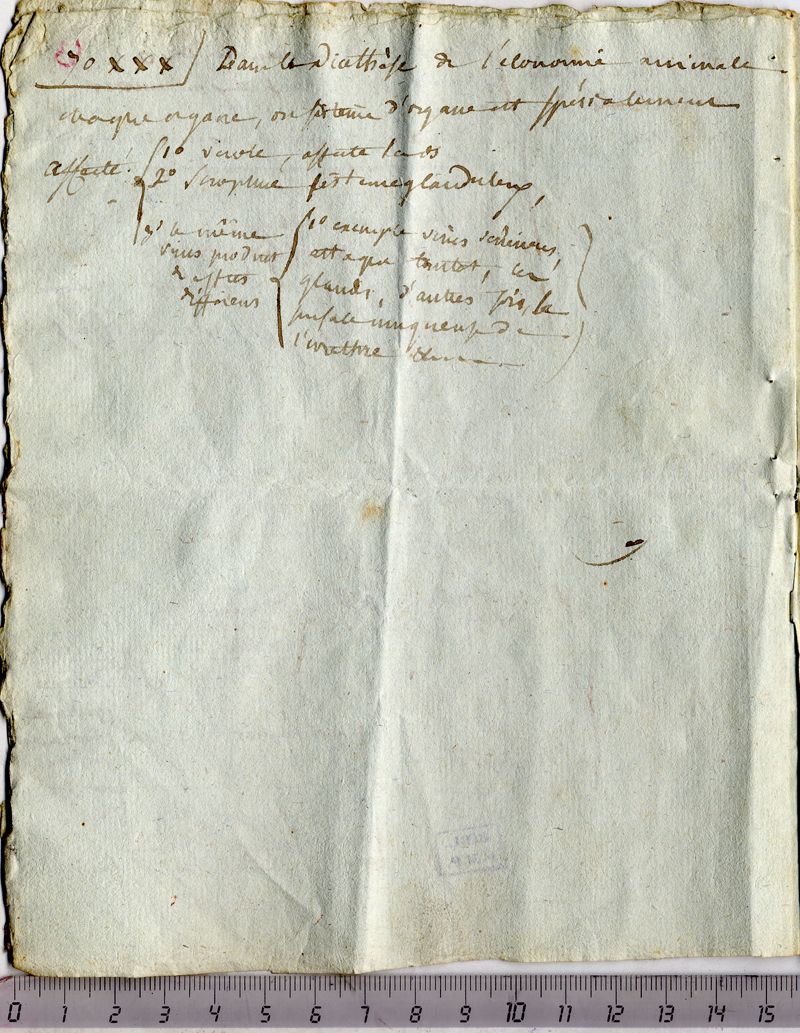 70 xxx) Dans la Diathèse de l'économie animale
chaque organe, ou sisteme d'organe est spécialement
affecté.
1° verole, affecte les os
2° Scrophule sisteme glanduleux,
le même
virus produit
différens
1° exemple virus vénérien,
attaque tantot, les
glands, d'autres fois, la
surface muqueuse de
l'urethre
0 1 2 3 4 5 6 7 8 9 10 11 12 13 14 15